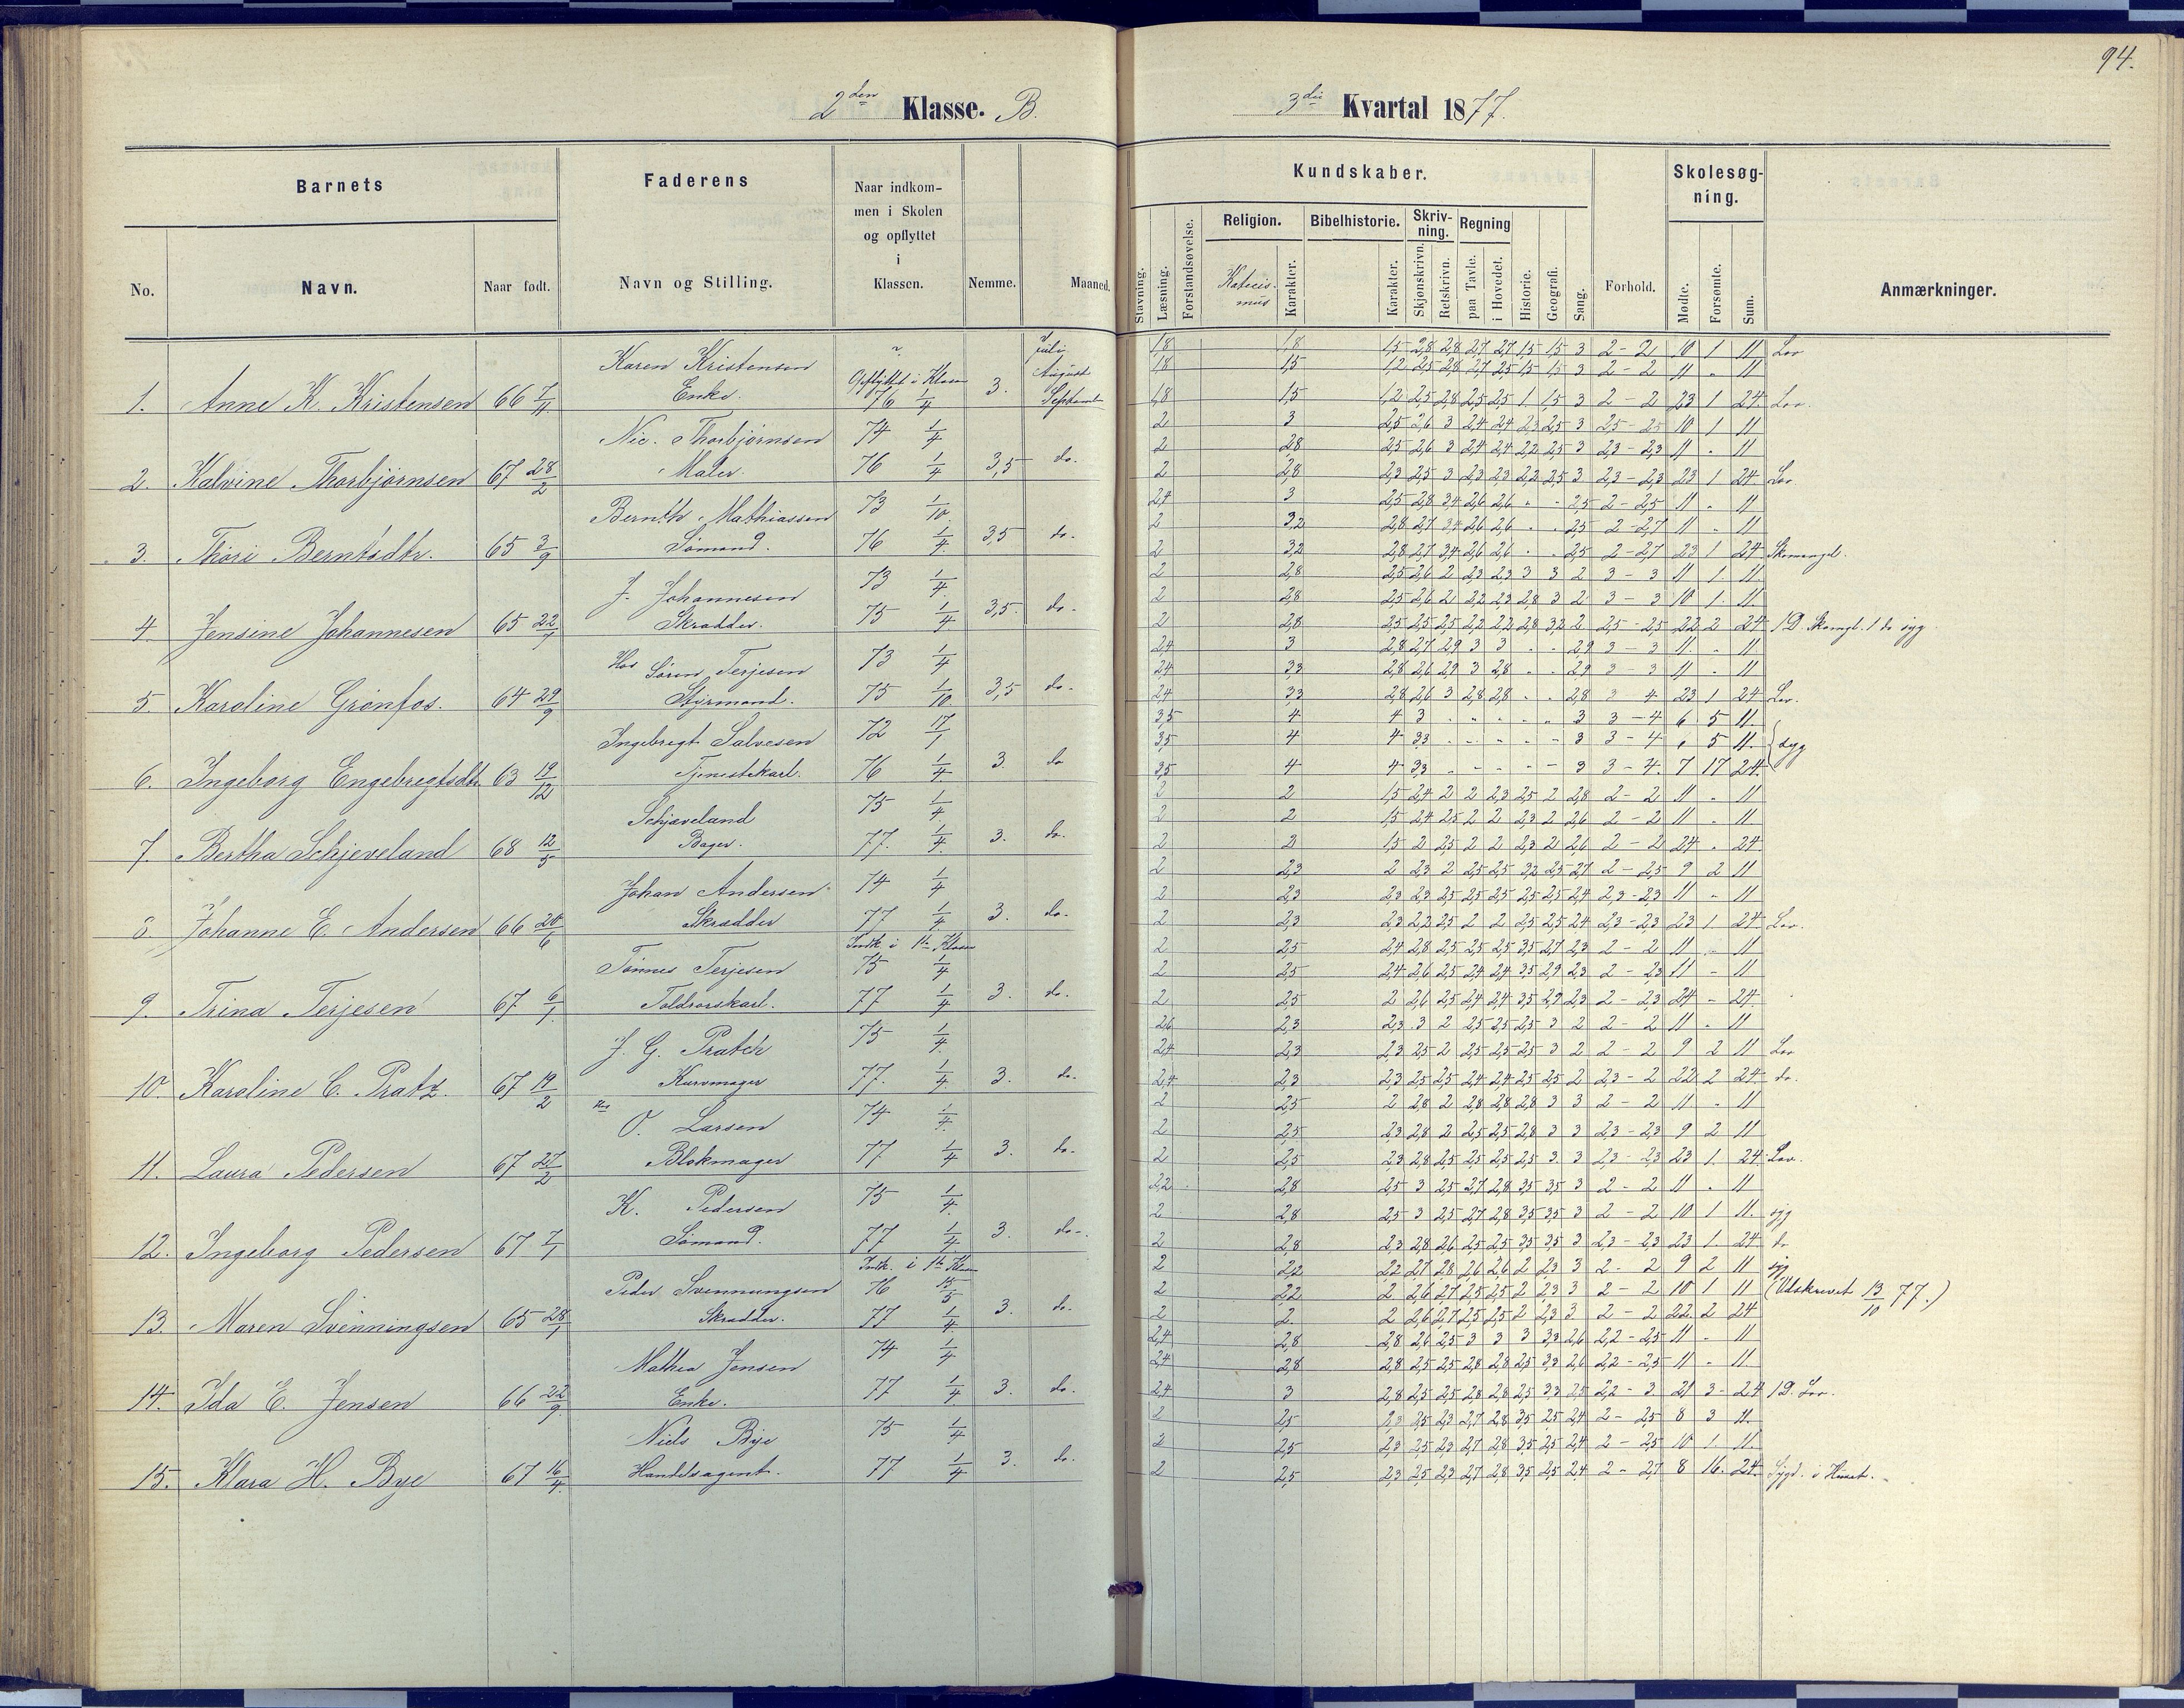 94.
2den Klasse. B.
3die Kvartal 1877.
Barnets
Faderens
Naar indkommen i Skolen og opflyttet i Klassen.
Nemme.
Maaned.
No.
Navn.
Naar født.
Navn og Stilling.
Kundskaber.
Skolesøgning.
Stavning.
Læsning.
Forstandsøvelse.
Religion.
Bibelhistorie.
Skrivning.
Regning
Katecismus
Karakter.
Karakter.
Skjønskrivn.
Retskrivn.
paa Tavle.
i Hovedet.
Historie.
Geografi.
Sang.
Forhold.
Mødte.
Forsømte.
Sum.
Anmærkninger.
1. Anne K. Kristensen 66 7/11 Karen Kristensen Enke. Opflyttet i Klassen 76 1/4 3. Juli August Septemb
1,8 1,8 1,5 2,8 2,8 2,7 2,7 1,5 1,5 3 2-2 10 1 11 Lov
1,8 1,5 1,2 2,5 2,8 2,7 2,5 1,5 1,5 3 2-2 11 " 11
1,8 1,5 1,2 2,5 2,8 2,5 2,5 1 1,5 3 2-2 23 1 24 Lov.
2. Kalvine Thorbjørnsen 67 28/2 Nic. Thorbjørnsen Maler. 74 1/4 76 1/4 3,5 do.
2 3 2,5 2,6 3 2,4 2,4 2,3 2,5 3 2,5-2,5 10 1 11
2 2,8 2,5 2,6 3 2,4 2,4 2,2 2,5 3 2,3-2,3 11 " 11
2 2,8 2,3 2,5 3 2,3 2,3 2,2 2,5 3 2,3-2,3 23 1 24 Lov
3. Thori Berntsdtr. 65 3/9 Bernth Mathiassen Sømand. 73 1/10 76 1/4 3,5 do.
2,4 3 2,5 2,8 3,4 2,6 2,6 " " 2,5 2-2,5 11 " 11
2 3,2 2,8 2,7 3,4 2,6 2,6 " " 2,5 2-2,7 11 " 11
2 3,2 2,8 2,7 3,4 2,6 2,6 " " 2,5 2-2,7 23 1 24 Skomangel.
4. Jensine Johannesen 65 22/7 J. Johannesen Skrædder. 73 1/4 75 1/4 3,5. do.
2 2,8 2,5 2,6 2 2,3 2,3 3 3 2 3-3 11 1. 11.
2 2,8 2,5 2,6 2 2,2 2,3 2,8 3 2 3-3 10 1. 11.
2 2,8 2,5 2,5 2,5 2,2 2,2 2,8 3,2 2 2,5-2,5 22 2 24 1 D. Skomgl. 1 do syg
5. Karoline Grønfos. 64 29/9 Hos Søren Terjesen Styrmand. 73 1/4 75 1/10 3,5 do.
2,4 3 2,8 2,7 2,9 3 3 " " 2,9 3-3 11. " 11
2,4 3,3 2,8 2,6 2,9 3 2,8 " " 2,9 3-3 11 " 11
2,4 3,3 2,8 2,6 3 2,8 2,8 " " 2,8 3-4 23 1 24 Lov.
6. Ingeborg Engebregtsdtr. 63 19/12 Ingebregt Salvesen Tjenestekarl. 72 17/1 76 1/4 3. do
3,5 4 4 3 " " " " " 3 3-4 6 5 11.
3,5 4 4 3,3 " " " " " 3 3-4 6 5 11. syg
3,5 4 4 3,3 " " " " " 3 3-4. 7 17 24.
7. Bertha Schjeveland 68 12/5 Schjæveland Bager. 75 1/4 77. 1/4 3. do.
2 2 1,5 2,4 2 2 2,3 2,5 2 2,8 2-2 11 " 11
2 2 1,5 2,4 2,5 2 2 2,3 2 2,6 2-2 11 " 11
2 2 1,5 2 2,5 2 2 2,3 2 2,6 2-2 24 " 24
8. Johanne E. Andersen 66 20/6 Johan Andersen Skrædder 74 1/4 77 1/4 3. do.
2 2,3 2 2,3 2 2,5 2,5 3,2 2,5 2,7 2-2,5 9 2 11
2 2,3 2,3 2,3 2,5 2,5 2,5 2,5 2,5 2,4 2,3-2,3 11 " 11
2 2,3 2,3 2,2 2,5 2 2 2,5 2,5 2,4 2,3-2,3 23 1. 24 Lov.
9. Trina Terjesen 67 6/1 Tønnes Terjesen Toldrorskarl. Indk. i 1te Klasse 75 1/4 77 1/4 3. do.
2 2,5 2,4 2,8 2,5 2,5 2,5 3,5 2,7 2,3 2-2 11 " 11
2 2,5 2,4 2,6 2,5 2,4 2,4 3,5 2,9 2,3 2-2,3 11 - 11
2 2,5 2 2,6 2,5 2,4 2,4 3,5 2,9 2,3 2-2,3 24 - 24
10. Karoline C. Pratz. 67 19/2 J. G. Pratch Kurvmager 75 1/4 77. 1/4 3. do.
2,6 2,3 2,3 3 2 2,5 2,5 2,5 3 2 2-2 11 " 11
2,4 2,3 2,3 2,5 2 2,5 2,5 2,5 3 2 2-2 9 2 11 Lov
2,4 2,3 2,3 2,5 2,5 2,4 2,4 2,5 2,5 2 2,3-2 22 2 24 do.
11. Laura Pedersen 67 27/2 Hos O. Larsen Blokmager 74 1/4 77 1/4 3. do.
2 2,5 2 2,8 2 2,8 2,8 2,8 3 3 2-2 11 " 11
2 2,5 2,3 2,8 2 2,5 2,5 2,8 3 3 2,3-2,3 9 2 11
2 2,5 2,3 2,8 2,5 2,5 2,5 2,5 3 3 2,3-2,3 23 1. 24 Lov.
12. Ingeborg Pedersen 67 7/1 K. Pedersen Sømand. 75 1/4 77 1/4 3. do.
2,2 2,8 2,5 3 2,5 2,7 2,8 3,5 3,5 3 2-2 11 " 11
2 2,8 2,5 3 2,5 2,7 2,8 3,5 3,5 3 2-2 10 1 11. syg
2 2,8 2,3 2,8 2,6 2,5 2,5 3,5 3,5 3 2,3-2,3 23 1. 24 do
13. Maren Svenningsen 65 28/1 Peder Svennungsen Skrædder. Indk. i 1te Klasse 76 15/5 77 1/4 3. do.
2 2,2 2,2 2,7 2,8 2,6 2,6 2 2,3 3 2-2 9 2 11 syg
2 2,2 2 2,6 2,7 2,5 2,5 2 2,3 3 2-2 10 1 11 (Udskrevet 13/10 77.)
2 2. 2 2,6 2,7 2,5 2,5 2 2,3 3 2-2 22. 2 24
14. Ida E. Jensen 66 22/9 Mathea Jensen Enke. 74 1/4 77 1/4 3. do.
2,4 2,8 2,8 2,6 2,5 3 3 3 3,3 2,6 2,2-2,5 11 " 11
2,4 2,8 2,8 2,5 2,5 2,8 2,8 2,5 3,3 2,6 2,2-2,5 11 " 11
2,4 3 2,8 2,5 2,5 2,8 2,8 2,5 3,3 2,5 2,2-3 21 3 24 1 D. Lov.
15. Klara H. Bye 67 16/4 Niels Bye Handelsagent. 75 1/4 77 1/4 3. do.
2 2,5 2,3 2,5 2,3 2,7 2,8 3,5 2,5 2,4 2-2,5 8 3 11.
2 2,5 2,3 2,5 2,3 2,7 2,8 3,5 2,5 2,4 2-2,5 10 1. 11.
2 2,5 2,3 2,5 2,3 2,7 2,8 3,5 2,5 2,4 2-2,7 8 16. 24. Sygd. i Huset.